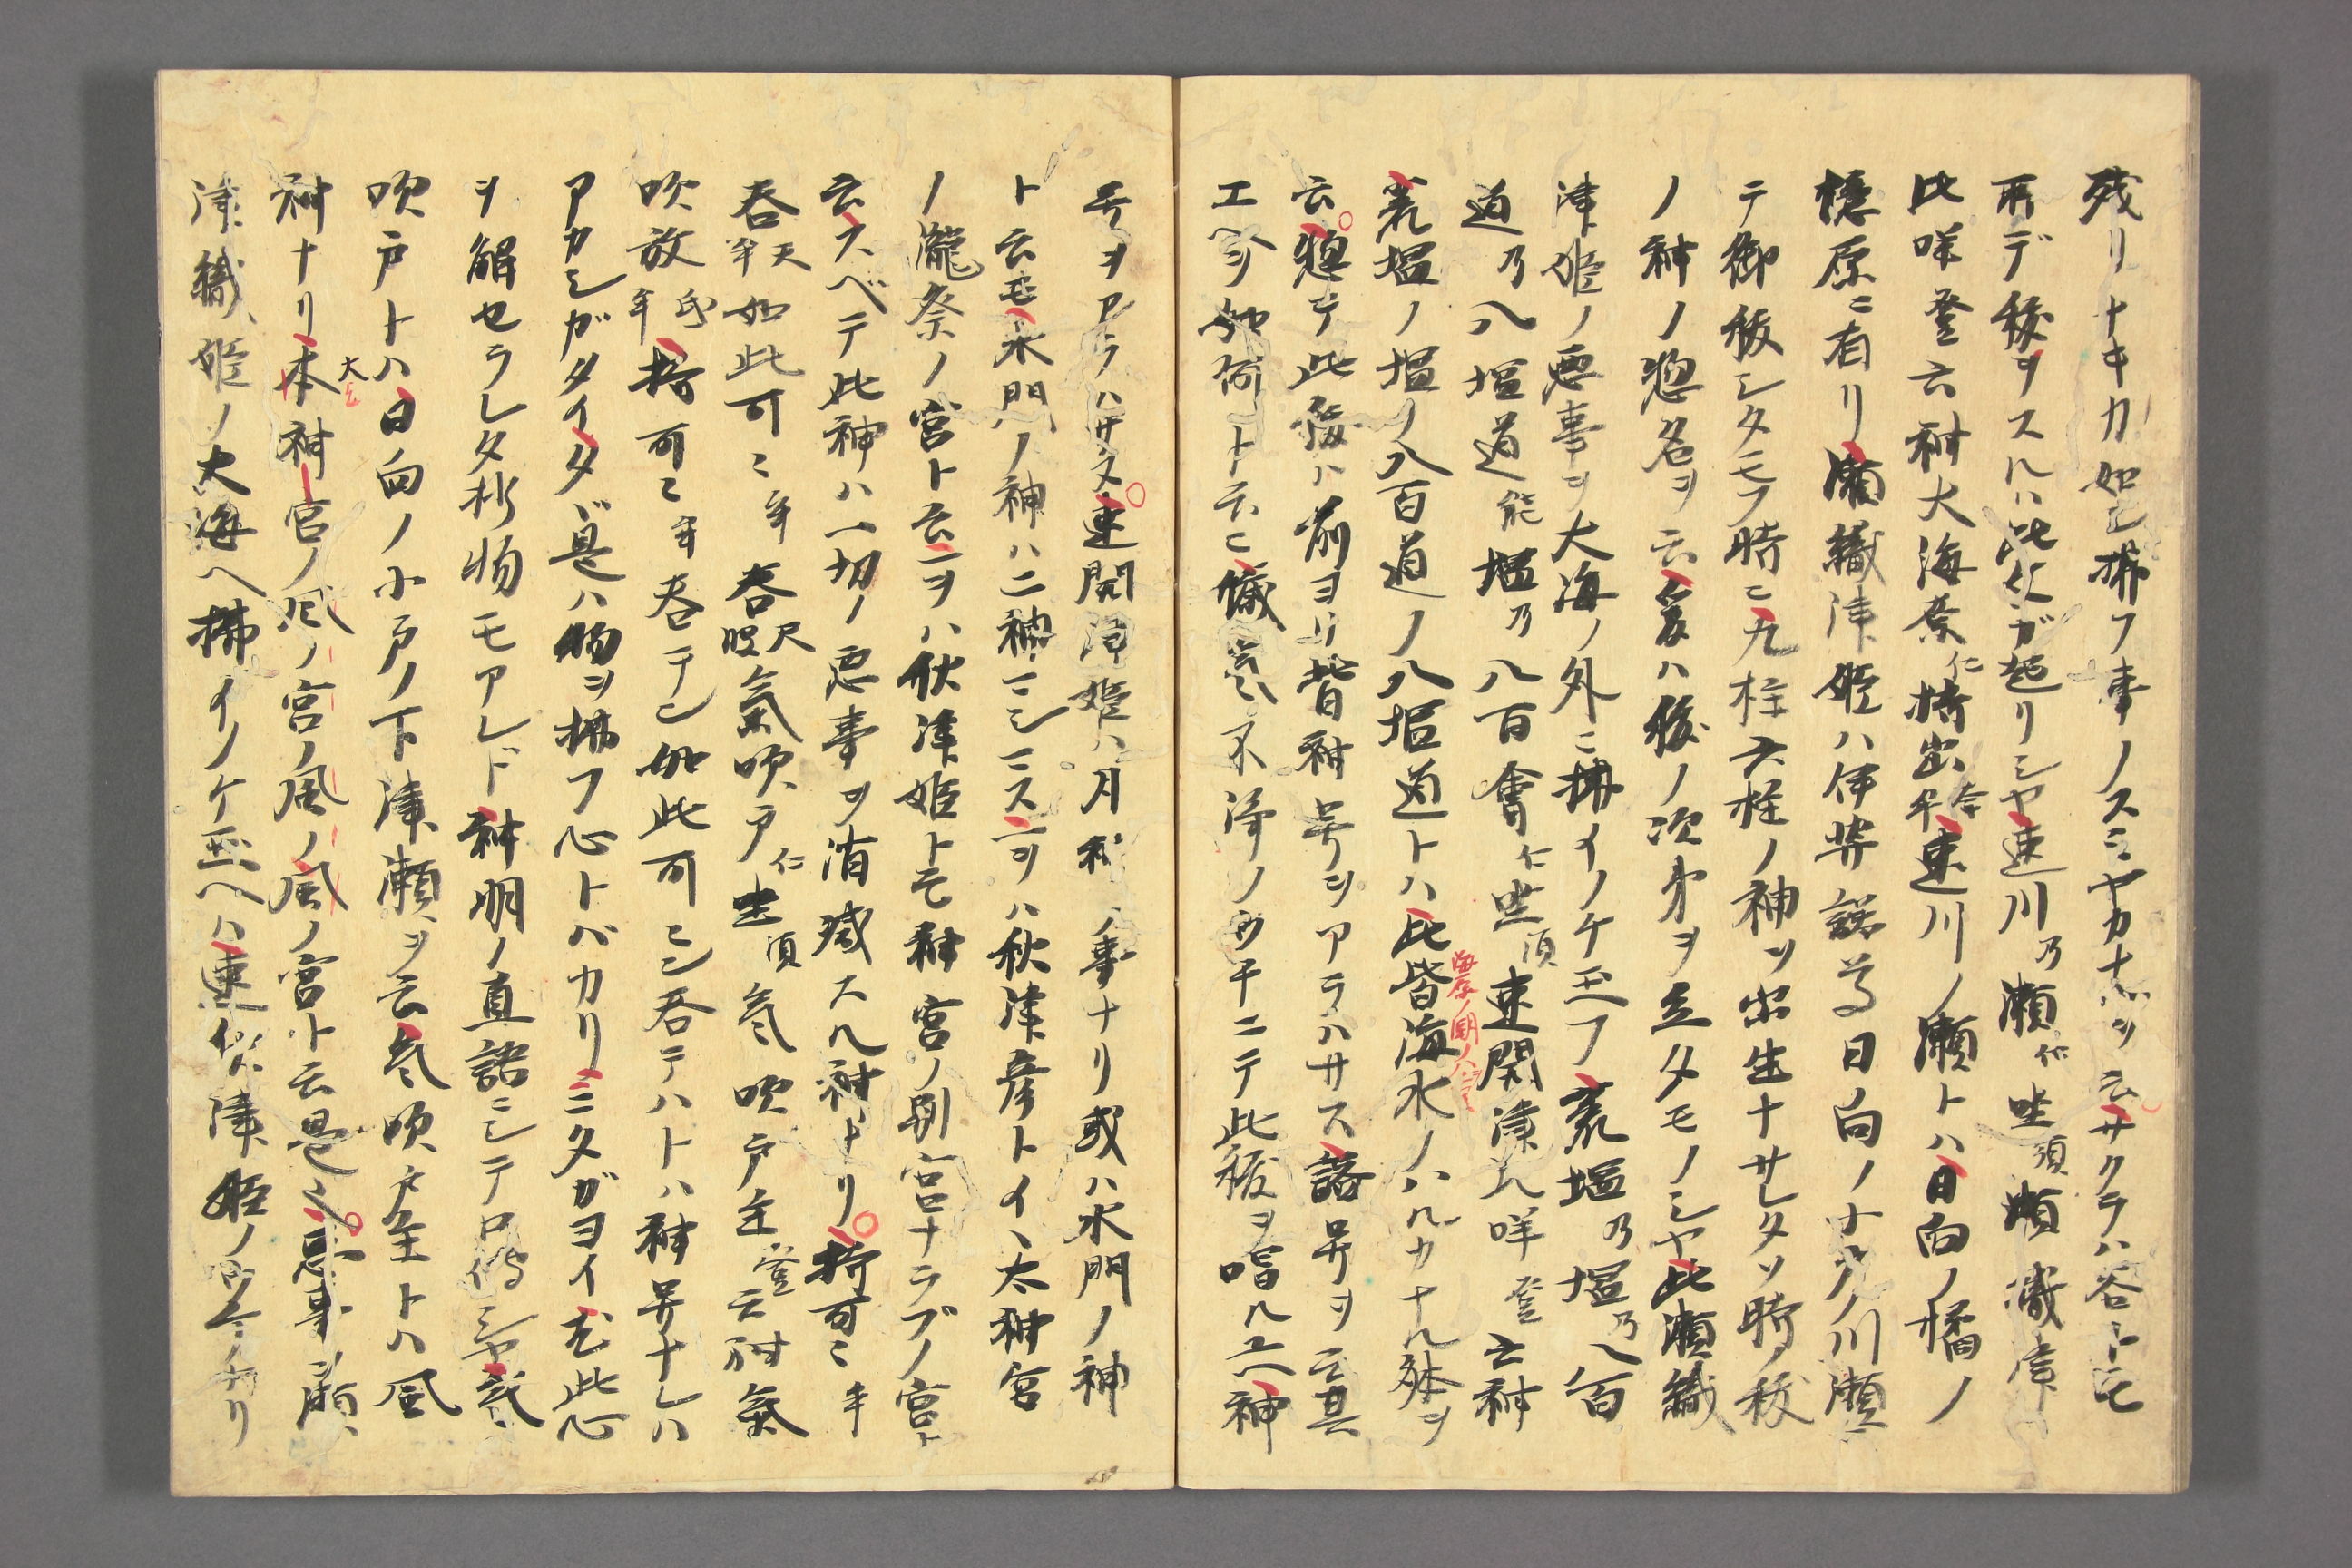 残リナキカ如ヒ拂フ事ノスミヤカナルヲ云サクラハ谷トモ
所デ秡ヲスルハ此文ガ起リシヤ速川乃瀬仁坐須瀬織津
比咩登云神大海原仁持出会牟速川ノ瀬トハ日向ノ橘ノ
檍原ニ有リ瀬織津姫ハ伊弉諾尊日向ノ小戸ノ川瀬
テ御秡シタモフ時ニ九柱六柱ノ神ヲ出生ナサレタソ時ノ秡
ノ神ノ惣名ヲ云爰ハ後ノ次第ヲ立タモノシヤ此瀬織
津姫ノ悪事ヲ大海ノ外ニ拂イノケ玉フ荒塩乃塩乃八百
道乃八塩道能塩乃八百會仁坐須速開津比咩登云神
荒塩ノ塩ノ八百道ノ八塩道トハ此皆海水ノハルカナル躰ヲ
云惣テ此後ハ前ヨリ皆神号ヲアラハサス諡号ヲ云其
工ヘシ如何ト云ニ懺悔不浄ノウチニテ此秡ヲ唱ル工ヘ神
号ヲアラハサヌ速開津姫ハ月神ノ事ナリ或ハ水門ノ神
ト云モ水門ノ神ハ二神ニシニス一ヲハ秋津彦トイヽ太神宮
ノ瀧祭ノ宮ト云一ヲハ秋津姫トモ神宮ノ別宮ナラブノ宮ト
云スベテ此神ハ一切ノ悪事ヲ消滅スル神ナリ持可ニ牟
呑天牟如此可ニ牟呑尺肥氣吹戸仁坐須氣吹戸主登云神氣
吹放氐牟持可ニ牟呑テシ如此可ニシ呑テハトハ神号ナレハ
アカシガタイタヾ是ハ惣ヲ拂フ心トバカリミタガヨイ尤此心
ヲ解セラレタ秘物モアレド神明ノ直詫ニシテ口傳シヤ氣
吹戸トハ日向ノ小戸ノ下津瀬ヲ云氣吹戸主トハ風
神ナリ本大神宮ノ風ノ宮ノ風ノ風ノ宮ト云是也悪事ヲ瀬
津織姫ノ大海ヘ拂イノケ玉ヘハ速秋津姫ノ